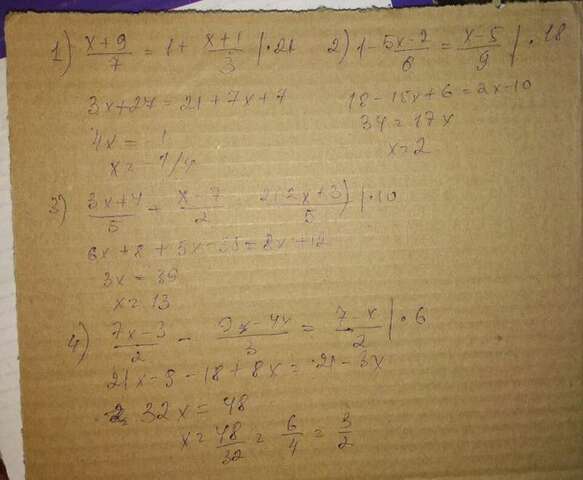 1) (x+9)/7 = 1 + (x+1)/3 | · 21
3x+27 = 21+7x+7
4x = -1
x = -1/4
2) 1 - (5x-2)/6 = (x-5)/9 | · 18
18-15x+6 = 2x-10
34 = 17x
x=2
3) (3x+4)/5 + (x-7)/2 2(2x+3)/5 | · 10
6x+8+5x-35 = 8x+12
3x = 39
x = 13
4) (7x-3)/2 - /3 = (7-x)/2 | · 6
21x-9-18+8x = 21-3x
32x = 48
x = 48/32 = 6/4 = 3/2